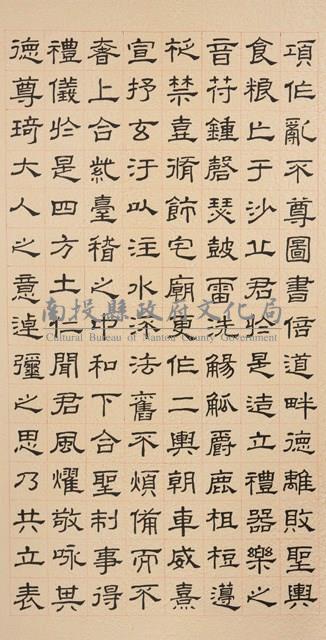 項作亂不尊圖書倍道畔德離敗聖輿
食粮亡于沙丘君於是造立禮器樂之
音苻鍾磬瑟鼓雷洗觴觚爵鹿柤梪籩
柉禁壺脩飾宅廟更作二輿朝車威熹
宣抒玄汙以注水流法舊不煩備而不
奢上合紫臺稽之中和下合聖制事得
禮儀於是四方土仁聞君風燿敬咏其
德尊琦大人之意逴彌之思乃共立表
南投縣政府文化局
Cultural Bureau of Nantou County Government